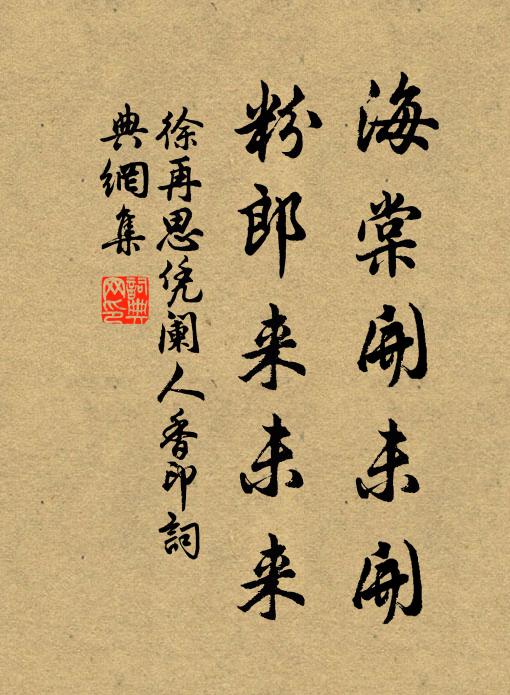 海棠開未開
粉郎来未来
徐再思凭阑人香印詞
典網集
詞典
网印